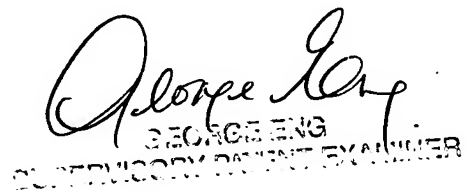 George Eng
GEORGE ENG
SUPERVISORY PATENT EXAMINER